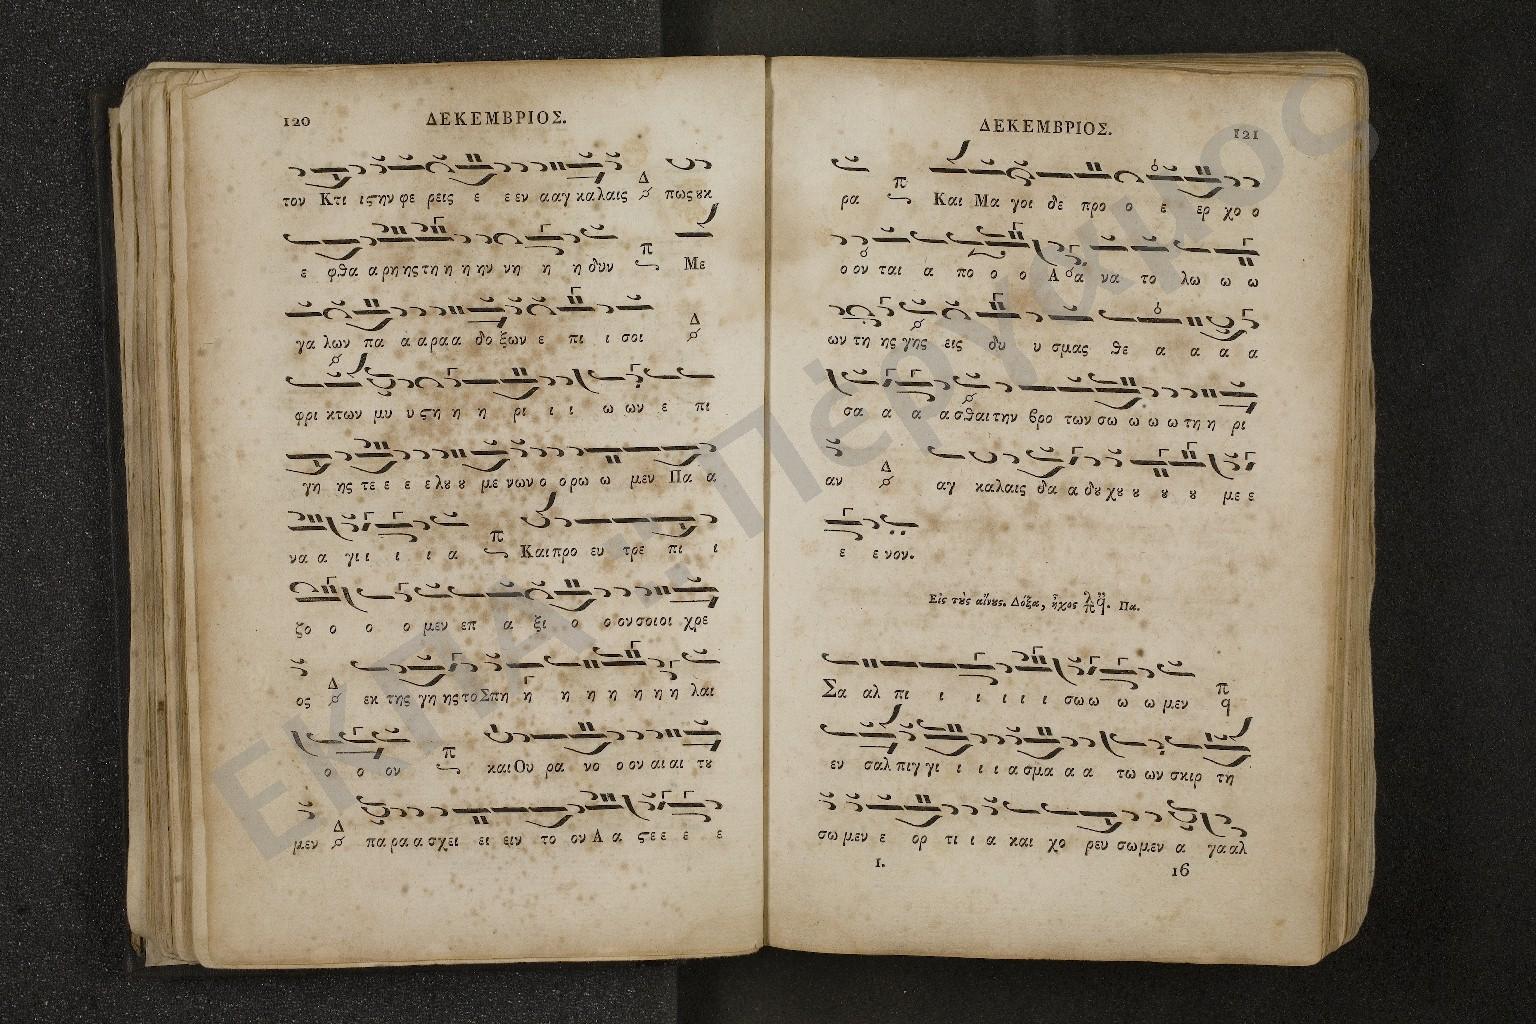 120
ΔΕΚΕΜΒΡΙΟΣ.
τον Κτι ιςην φε ρεις ε ε εν α αγ κα λαις Δ πως ȣκ
ε φθα α ρη ης τη η η ην νη η η δυν π Με
γα λων πα α α ρα α δο ξων ε πι ι σοι Δ
φρι κτων μυ υ ςη η η ρι ι ι ω ων ε πι
γη ης τε ε ε ε λȣ ȣ με νων ο ο ρω ω μεν Πα α
να α γι ι ι ι α π Και προ ευ τρε πι ι
ζο ο ο ο μεν επ α ξι ο ο ον σοι οι χρε
ος Δ εκ της γη ης το Σπη η η η η η η λαι
ο ο ον π και Ου ρα νο ο ον αι αι τȣ
μεν Δ πα ρα α σχει ει ειν το ον Α α ςε ε ε ε
ΔΕΚΕΜΒΡΙΟΣ.
121
ρα π Και Μα γοι δε προ ο ε ερ χο ο
ο ον ται α πο ο ο Α α να το λω ω ω
ων τη ης γης εις δυ υ σμας θε α α α α
σα α α α σθαι την βρο των σω ω ω ω τη η ρι
αν Δ αγ καλαις δα α δȣ χȣ ȣ ȣ ȣ με ε
ε ε νον.
Εἰς τȣ̀ς αἴνȣς. Δόξα, ἦχος π. Πα.
Σα αλ πι ι ι ι ι ι σω ω ω ω μεν π
εν σαλ πιγ γι ι ι ι α σμα α α τω ων σκιρ τη
σω μεν ε ορ τι ι α και χο ρευ σω μεν α γα αλ
I.
16
ΕΚΠΑ - Πέργαμος